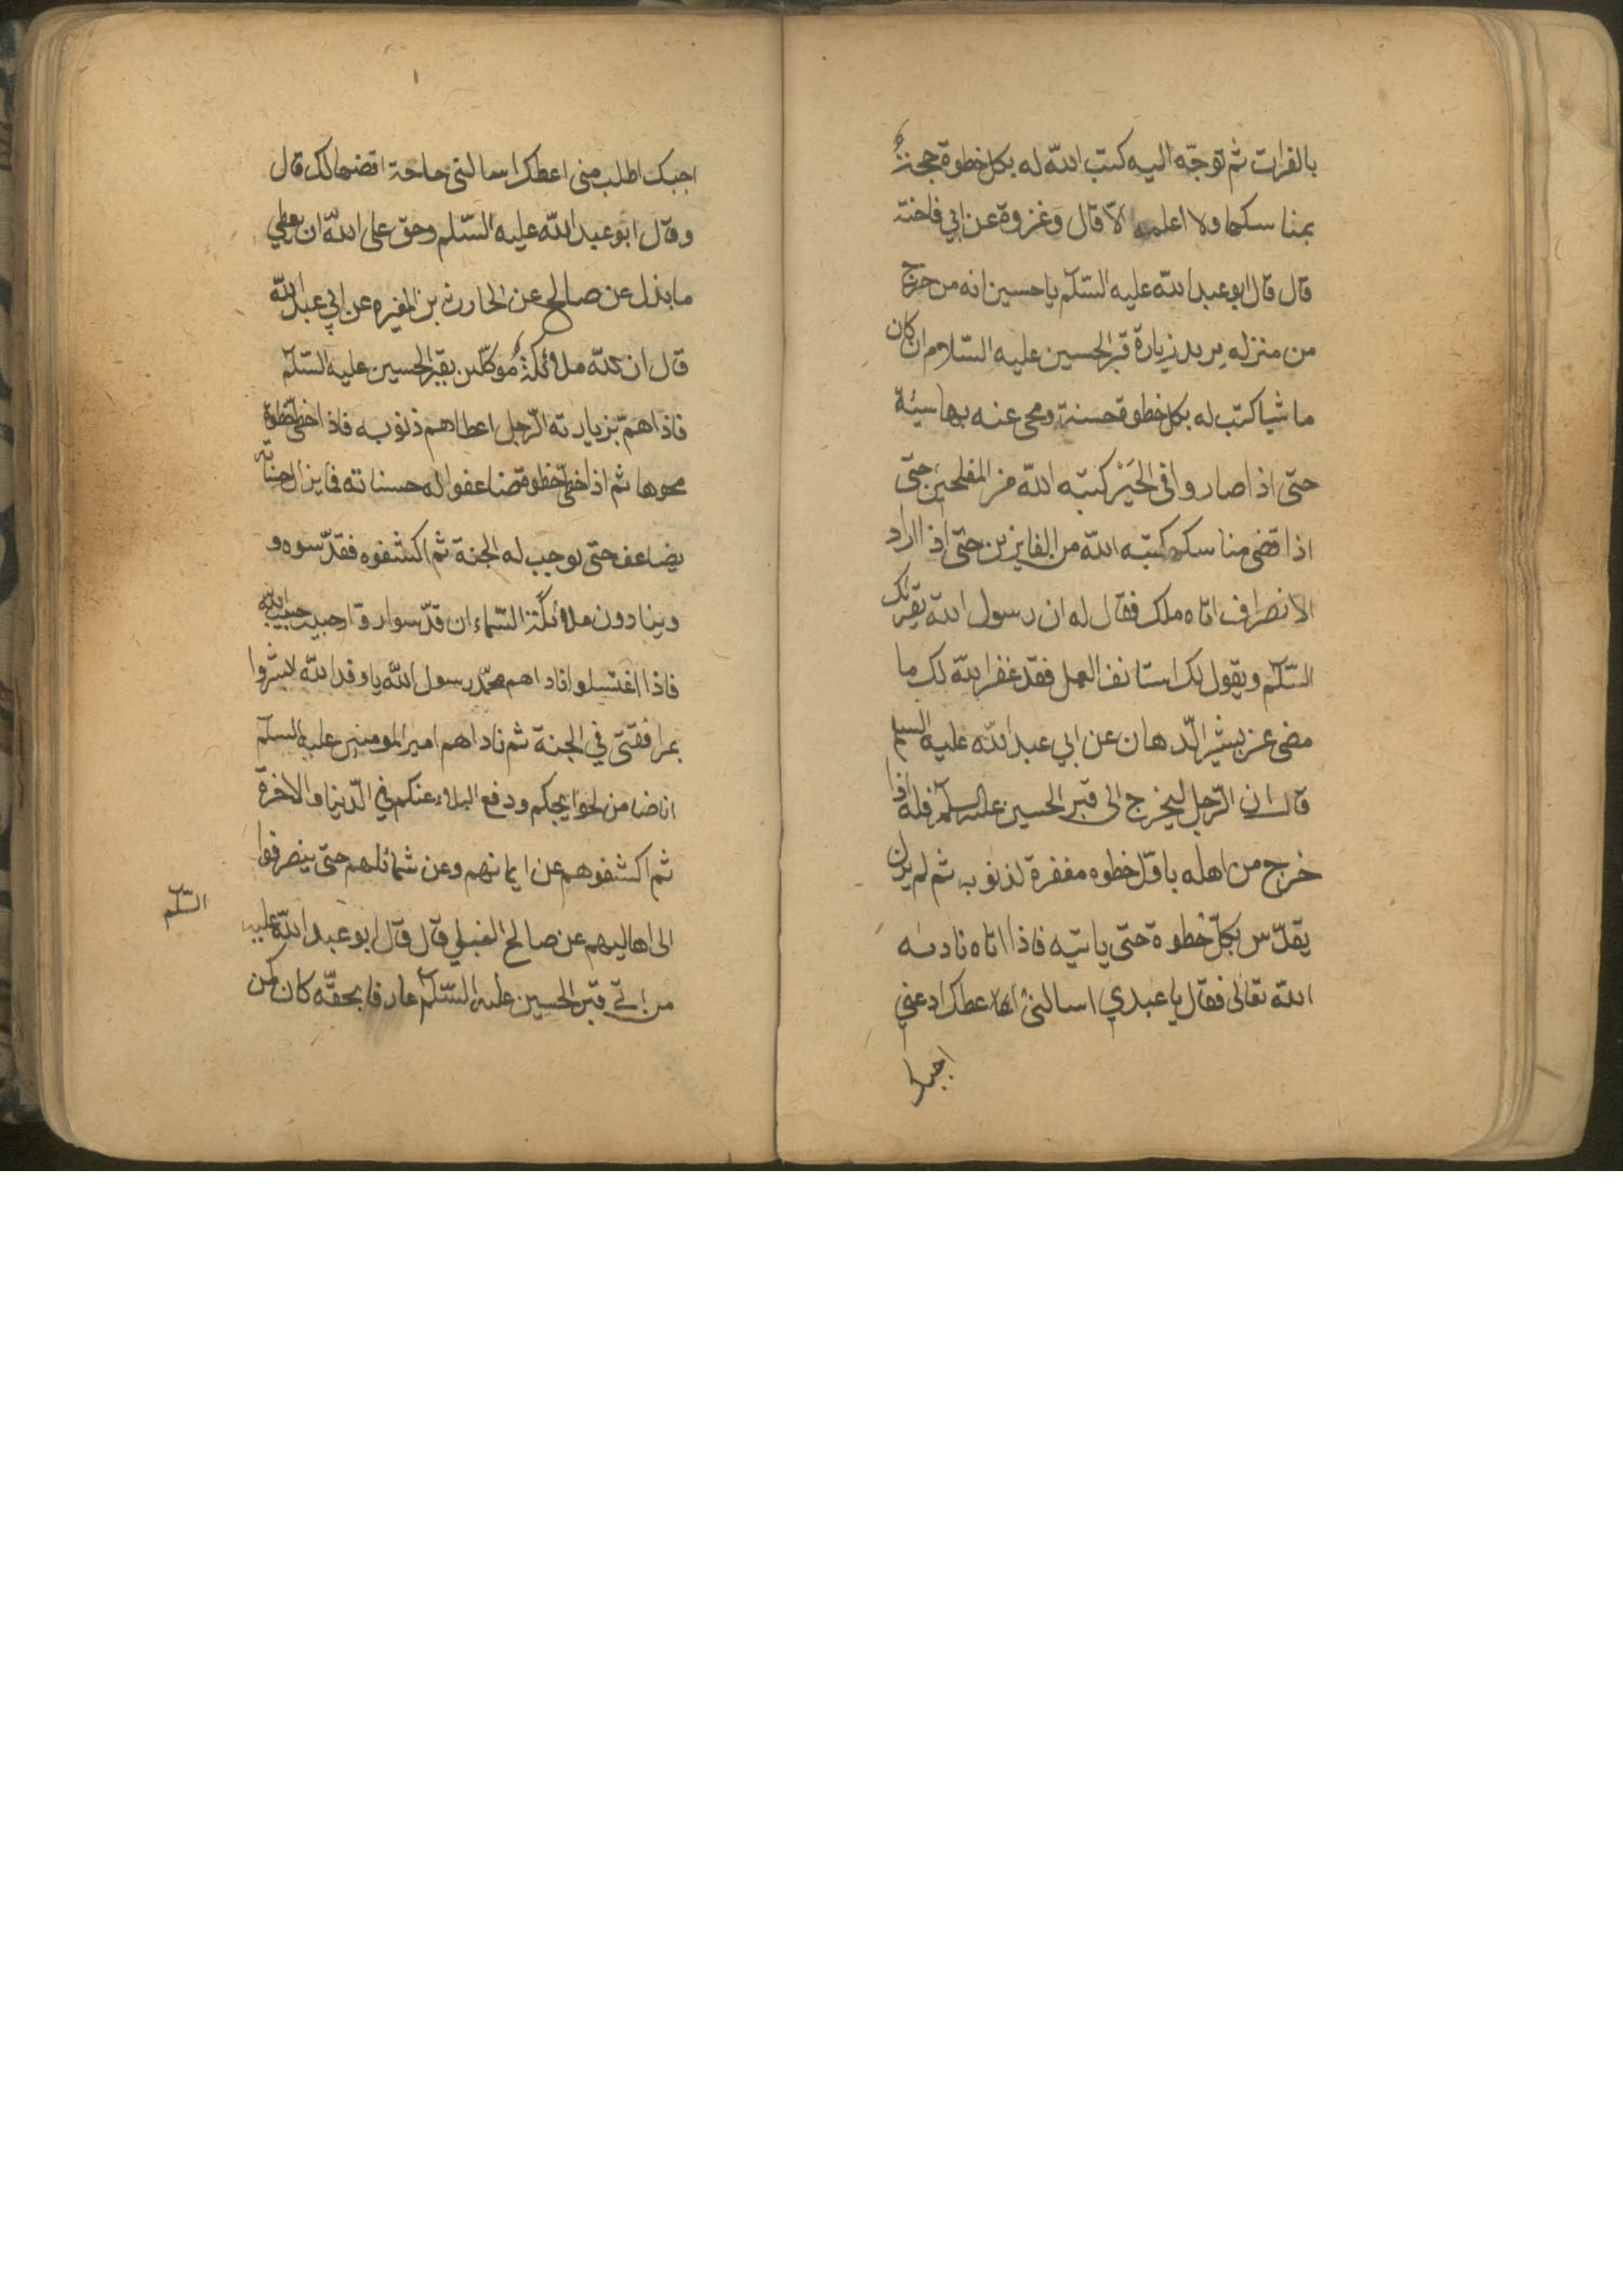 بالفرات ثم توجّه اليه كتب اللّه له بكل خطوة حجة
بمناسكها ولا اعلمه الّا قال وغزوة عن ابي فاختة
قال قال ابو عبد اللّه عليه السّلم يا حسين انه من خرج
من منزله يريد زيارة قبر الحسين عليه السّلام ان كان
ماشيا كتب له بكل خطوة حسنة ومحى عنه بها سيئة
حتى اذا صار وافى الحَيْر كتبه اللّه من المفلحين حتى
اذا قضى مناسكه كتبه اللّه من الفايزين حتى اذا اراد
الانصراف اتاه ملك فقال له ان رسول اللّه يقرئك
السّلم ويقول لك استانف العمل فقد غفر اللّه لك ما
مضى عن بشير الدّهان عن ابي عبد اللّه عليه السلم
قال ان الرّجل ليخرج الى قبر الحسين عليه السلم فله اذا
خرج من اهله باوّل خطوه مغفرة لذنوبه ثم لم يزل
يقدّس بكلّ خطوة حتى ياتيه فاذا اتاه ناداه
اللّه تعالى فقال يا عبدي اسالني اعطك ادعني
اجبك
اجبك اطلب منى اعطك اسالني حاجة اقضها لك قال
وقال ابو عبد اللّه عليه السّلم وحق على اللّه ان يعطي
ما بذل عن صالح عن الحارث بن المغيره عن ابي عبد اللّه
قال ان للّه ملائكةً مُوكّلين بقبر الحسين عليه السّلم
فاذا همّ بزيارته الرّجل اعطاهم ذنوبه فاذا اخطى خطوة
محوها ثم اذا خطى خطوة ضاعفوا له حسناته فما يزال حسناته
يضاعف حتى توجب له الجنة ثم اكتنفوه فقدّسوه و
وينادون ملائكة السّماء ان قدّسوا زوّار حبيب حبيب اللّه
فاذا اغتسلوا ناداهم محمّد رسول اللّه يا وفد اللّه ابشروا
بمرافقتي في الجنة ثم ناداهم امير المومنين عليه السلم
انا ضامن لحوايجكم ودفع البلاء عنكم في الدّنيا والاخرة
ثم اكتنفوهم عن ايمانهم وعن شمائلهم حتى ينصرفوا
الى اهاليهم عن صالح النيلي قال قال ابو عبد اللّه عليه
السّلم
من اتى قبر الحسين عليه السّلم عارفا بحقّه كان كمن